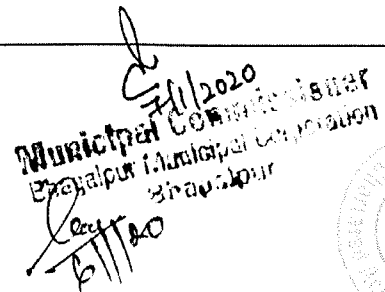 7/1/2020
Municipal Commissioner
Bhagalpur Municipal Corporation
Bhagalpur
6/1/20